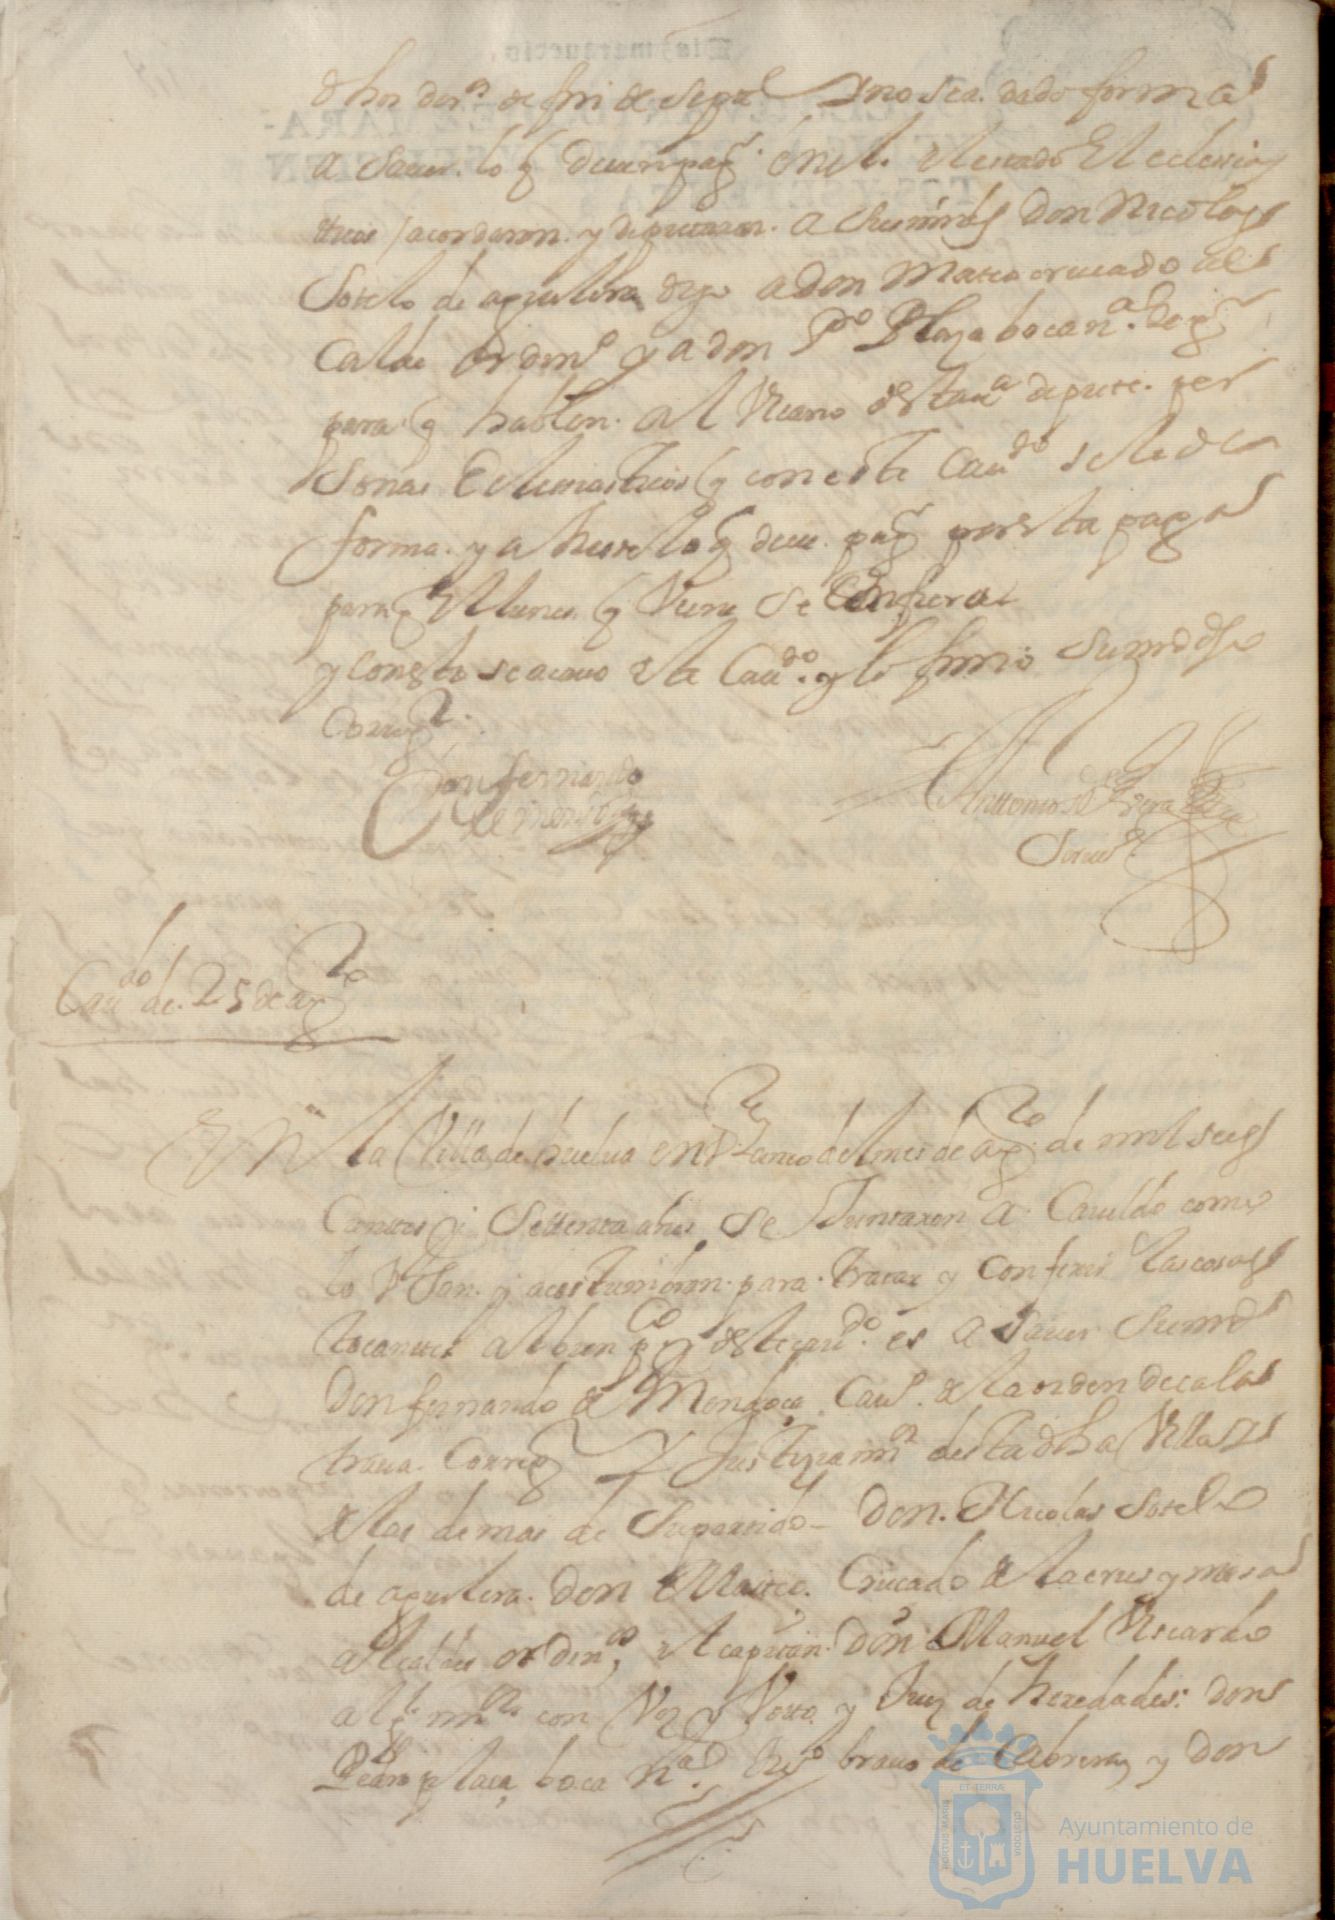 dhos dos. de fin de Sepe Y no sea dado forma
a sauer lo q deuen pagr. en el. el estado Eclesias
ticos / acordaron y diputaron a los señores Don Nicolas
Sotelo de aguilera digo a Don Mateo crucado al
Calde Ordinº y a don Pº Plaza bocanª. Regr
para q hablen al Vicario destaua depute per
sonas Eclesiasticos q con este Caudo se le de
forma y a lo q deue pagr por esta paga
para q el lunes q Viene se Confiera
y con esto se acauo este Caudo. y lo firmo Su md dho
Corregr.
Don fernando
de mendoza
Antonio de
Caudo de. 25 de agto
En la Villa de huelua en Vte cinco del mes de agto de mil seis
Cientos y Settenta años se Juntaron a Cauildo como
lo Vsan y acostumbran para tratar y Conferir las cosas
tocantes al bien pco y deste caudo es a sauer Su md
Don fernando de Mendoça Cauº. de la orden de cala
traua Corregr Y Justiçia mr desta dha Villa y
de las demas de Su partido – Don. Nicolas Sotelo
de aguilera. Don Mateo. Crucado de la crus y mora
alcaldes ordinos, el capitan Don Manuel Ricardo
algl. mr con Voz y Votto y Juez de heredades: don
Pedro plaça boca nª. bravo de Cabrera y Don
PORTUS MARIS
ET TERRÆ
CUSTODIA
Ayuntamiento de
HUELVA